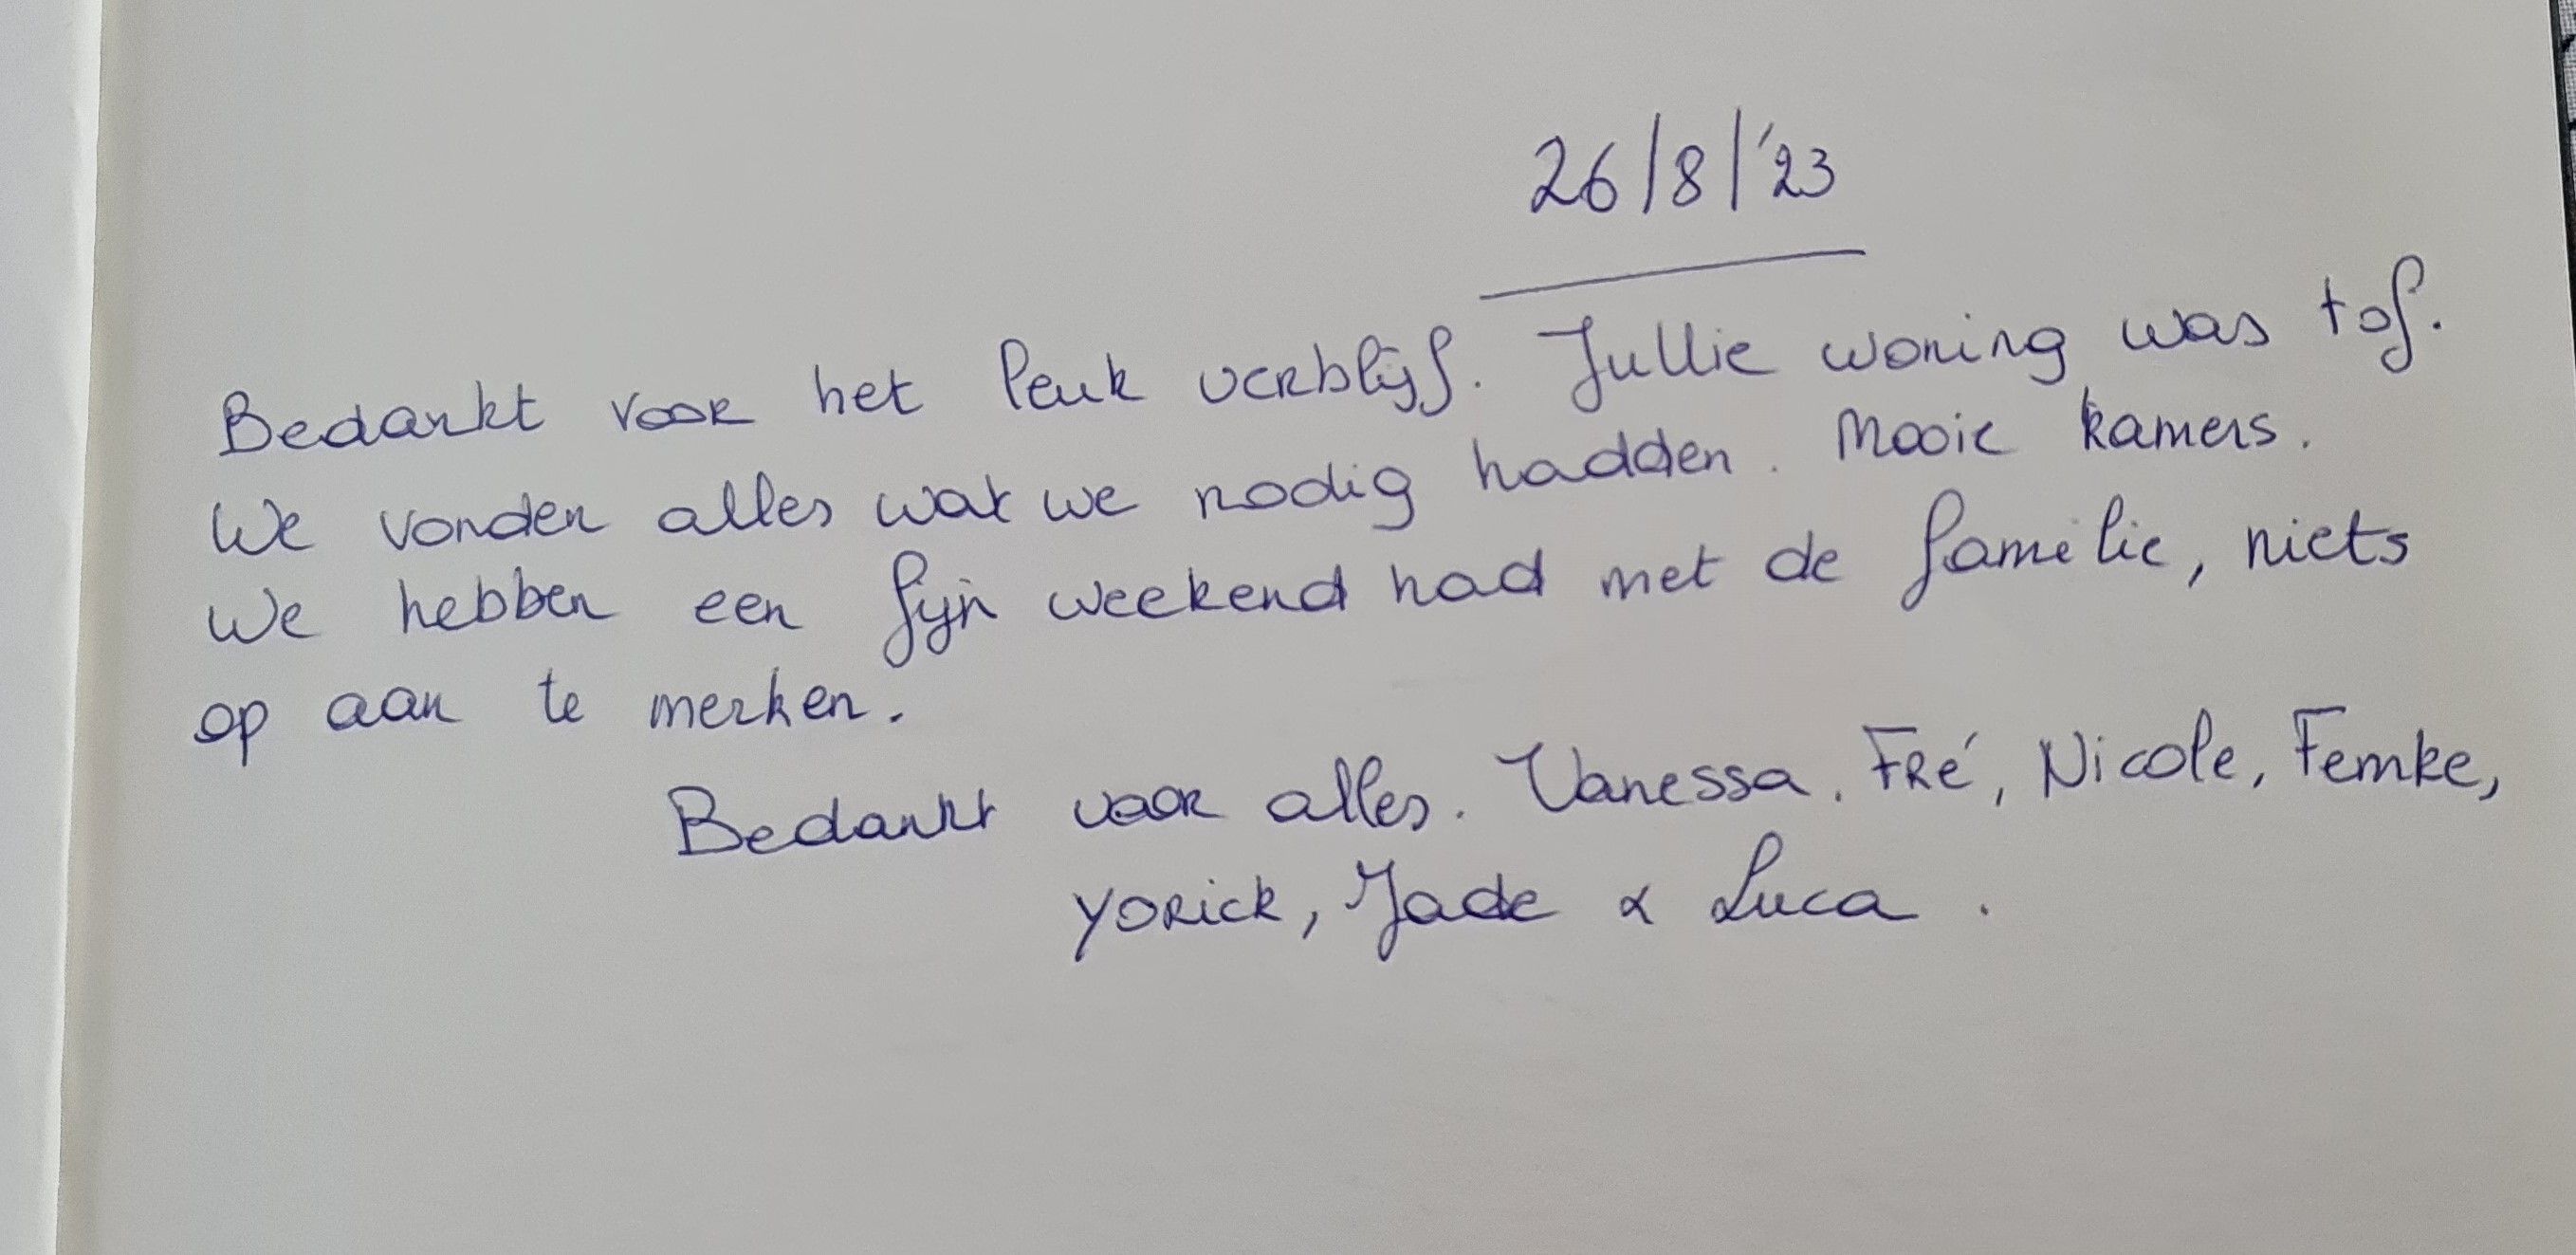 26/8/'23
Bedankt voor het leuk verblijf. Jullie woning was tof.
We vonden alles wat we nodig hadden. Mooie kamers.
We hebben een fijn weekend had met de familie, niets
op aan te merken.
Bedankt voor alles. Vanessa. Fré, Nicole, Femke,
Yorick, Jade & Luca.